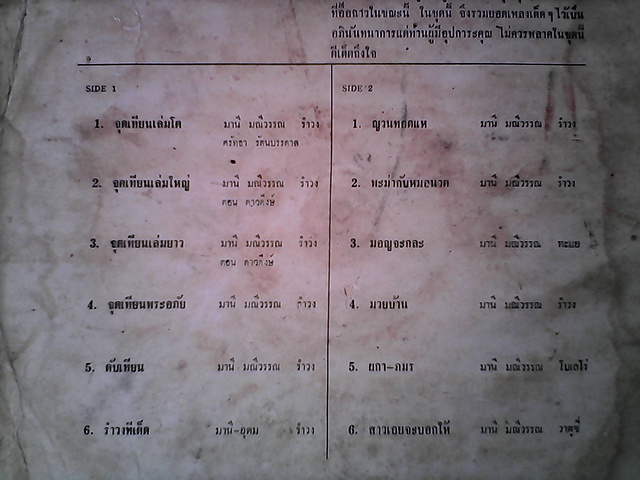 ที่ออกวางในขณะนี้ ในชุดนี้ จึงรวมยอดเพลงเด็ดๆไว้เป็น
อภินันทนาการแด่ท่านผู้มีอุปการะคุณ ไม่ควรพลาดในชุดนี้
ทีเด็ดถึงใจ
SIDE 1
1. จุดเทียนเล่มโต มานี มณีวรรณ รำวง
ศรัทธา รัตนบรรดาล
2. จุดเทียนเล่มใหญ่ มานี มณีวรรณ รำวง
ดอน ดาวดึงษ์
3. จุดเทียนเล่มยาว มานี มณีวรรณ รำวง
ดอน ดาวดึงษ์
4. จุดเทียนพระอภัย มานี มณีวรรณ รำวง
5. ดับเทียน มานี มณีวรรณ รำวง
6. รำวงทีเด็ด มานี-อุดม รำวง
SIDE 2
1. ญวนทอดแห มานี มณีวรรณ รำวง
2. พะม่ากับหมอนวด มานี มณีวรรณ รำวง
3. มอญจะกละ มานี มณีวรรณ ทะแย
4. มวยบ้าน มานี มณีวรรณ รำวง
5. ผกา-ภมร มานี มณีวรรณ โบเลโร่
6. สาวเอยจะบอกให้ มานี มณีวรรณ วาตูซี่